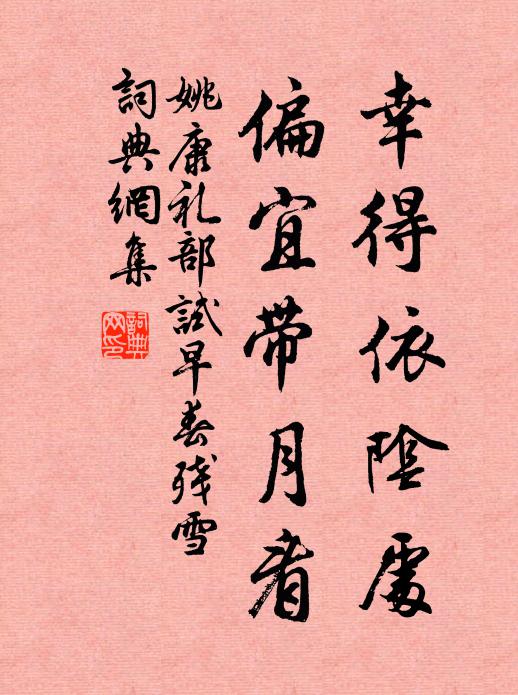 幸得依陰處
偏宜带月看
姚康礼部試早春残雪
詞典網集
詞典網印